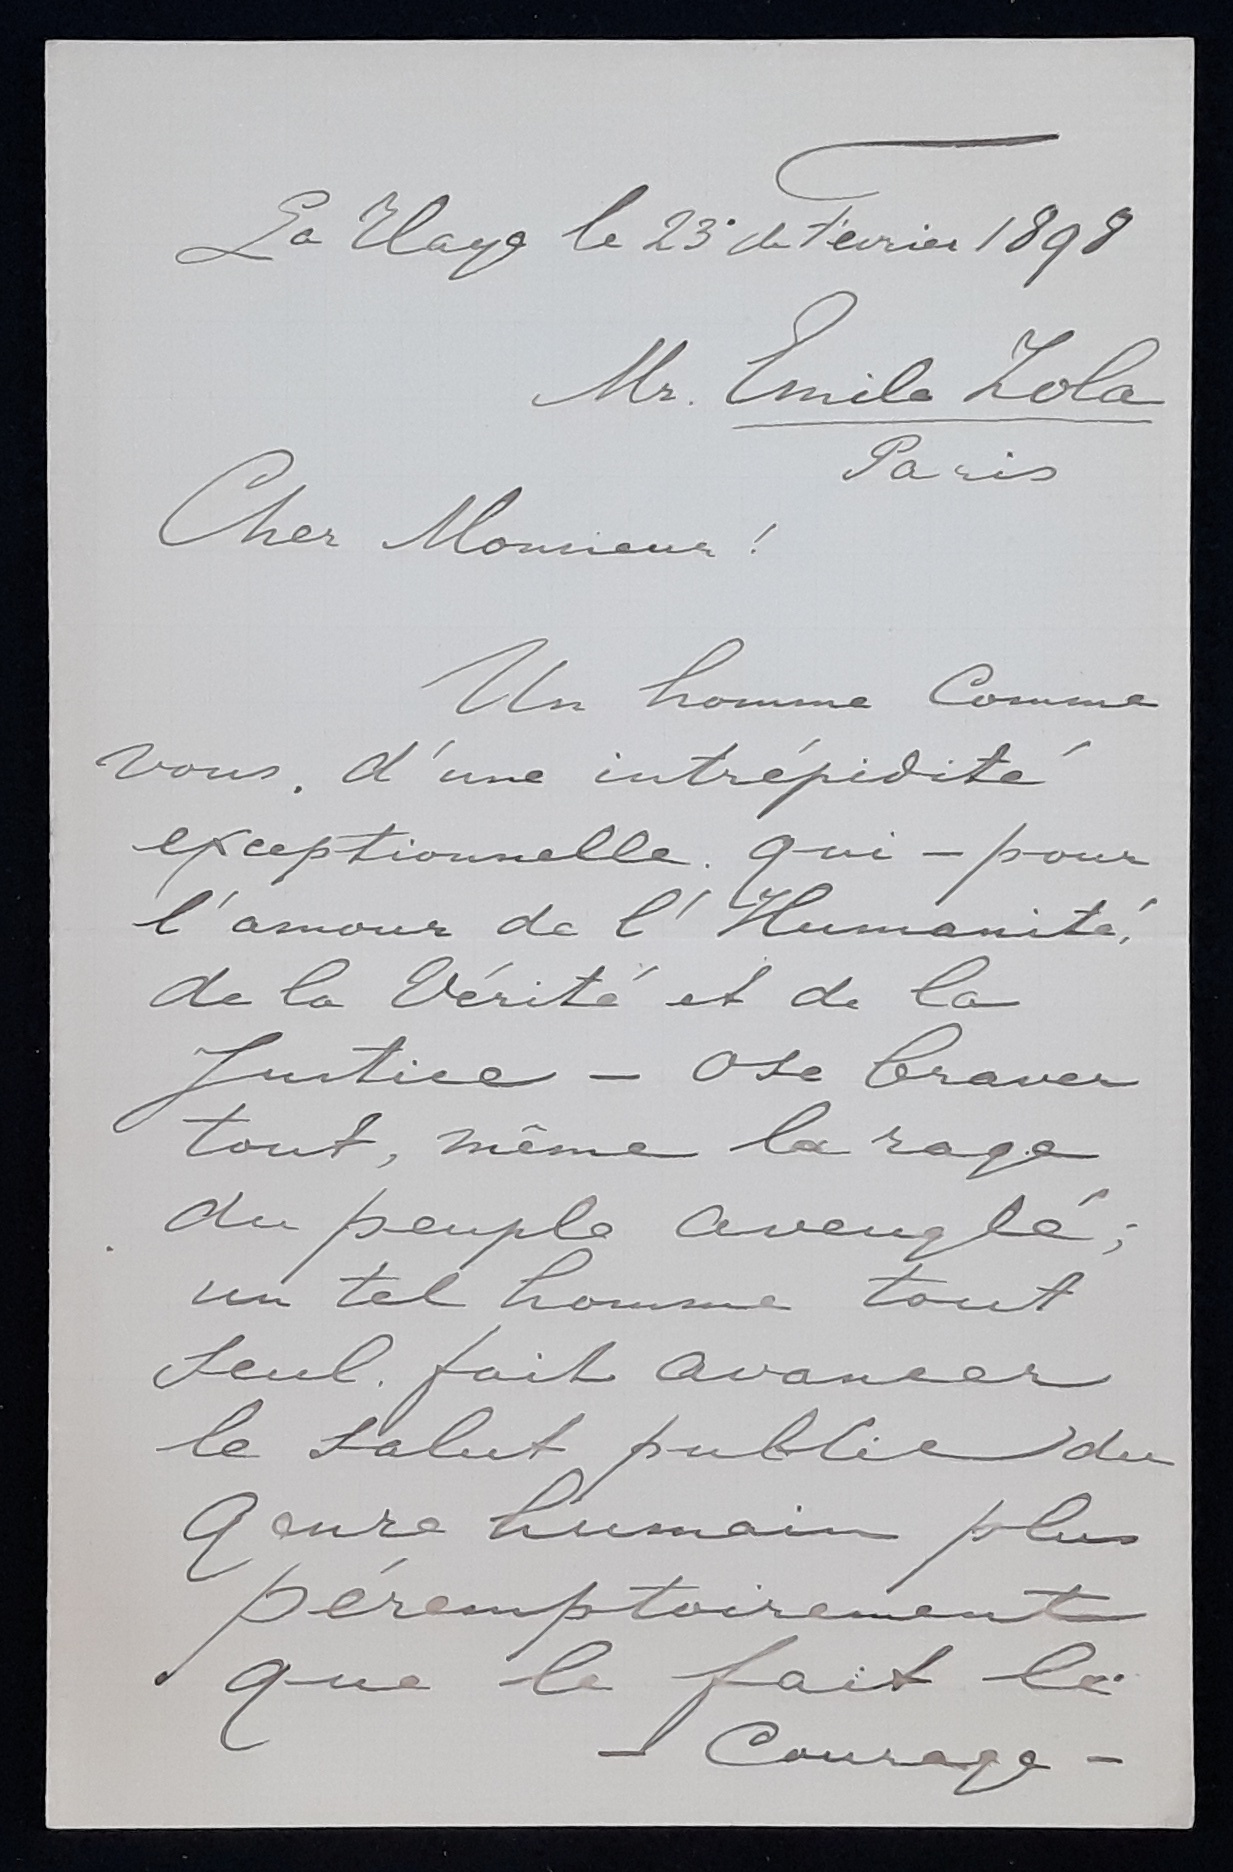 La Haye le 23 de Février 1898
Mr. Emile Zola
Paris
Cher Monsieur !
Un homme comme
vous, d'une intrépidité
exceptionnelle, qui – pour
l'amour de l'Humanité,
de la Vérité et de la
Justice – ose braver
tout, même la rage
du peuple aveuglé ;
un tel homme tout
seul, fait avancer
le salut public du
genre humain plus
péremptoirement
que le fait le
– Courage –